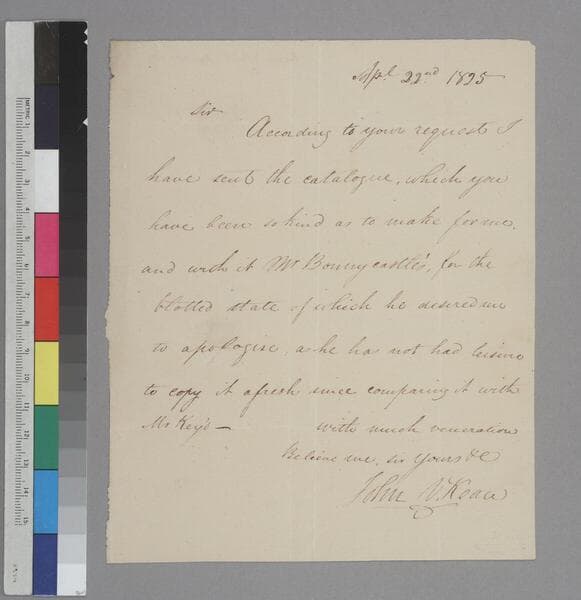 Apl. 22nd 1825
Sir
According to your request I
have sent the catalogue, which you
have been so kind as to make for me,
and with it Mr Bonnycastle's, for the
blotted state of which he desired me
to apologise, as he has not had leisure
to copy it afresh since comparing it with
Mr Key's —
with much veneration
Believe me, sir yours &c
John V.